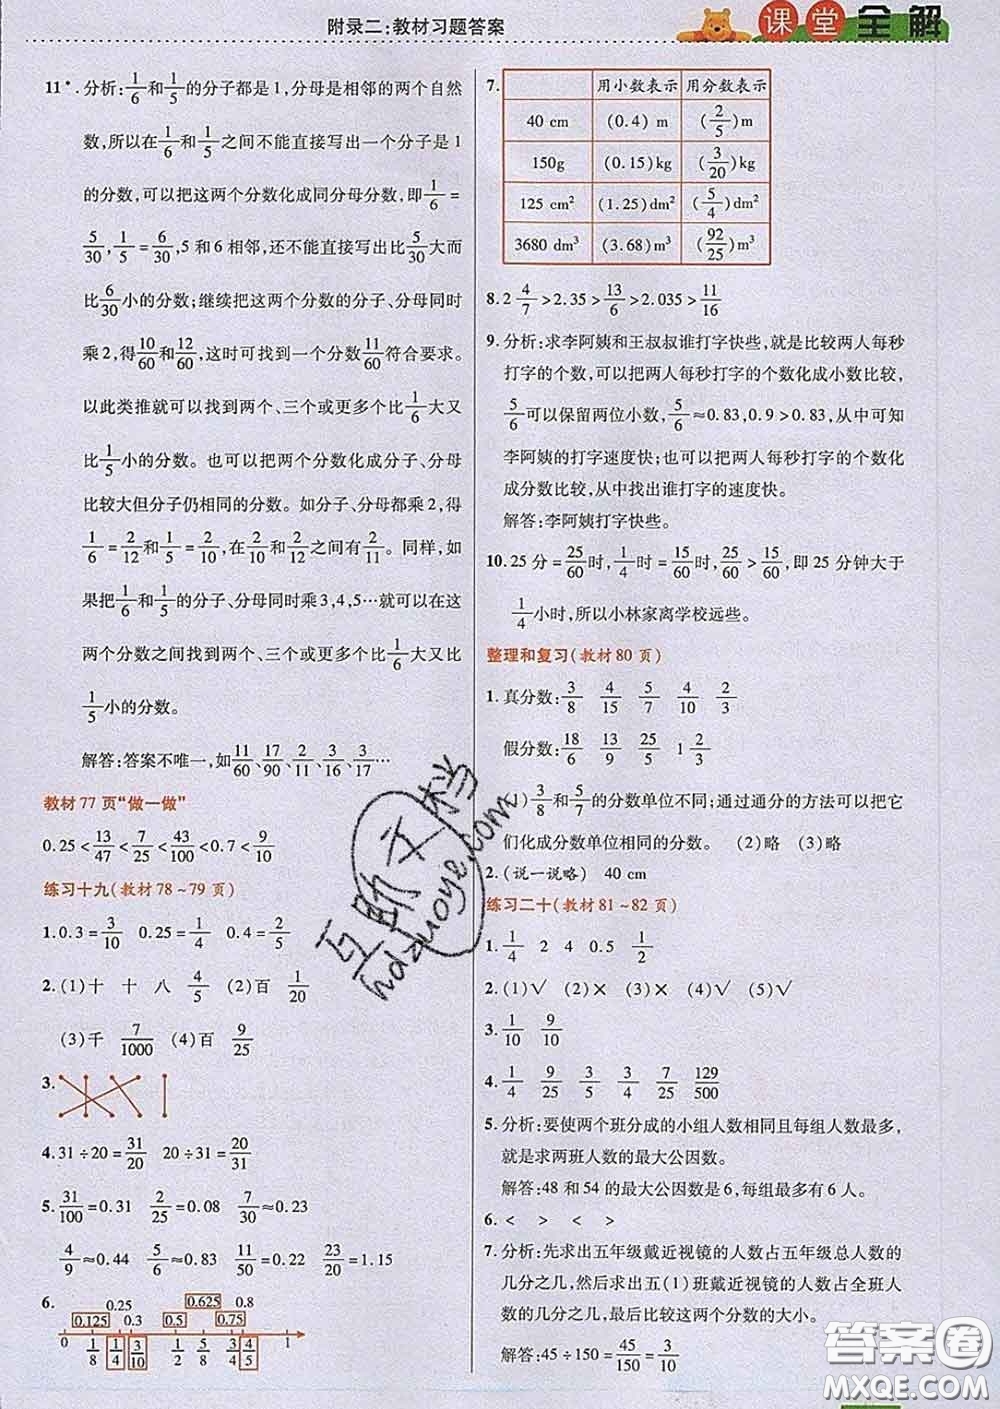 附录二:教材习题答案
课堂全解
11*.分析:1/6和1/5的分子都是1,分母是相邻的两个自然
数,所以在1/6和1/5之间不能直接写出一个分子是1
的分数,可以把这两个分数化成同分母分数,即1/6=
5/30,1/5=6/30,5和6相邻,还不能直接写出比5/30大而
比6/30小的分数;继续把这两个分数的分子、分母同时
乘2,得10/60和12/60,这时可找到一个分数11/60符合要求。
以此类推就可以找到两个、三个或更多个比1/6大又
比1/5小的分数。也可以把两个分数化成分子、分母
比较大但分子仍相同的分数。如分子、分母都乘2,得
1/6=2/12和1/5=2/10,在2/10和2/12之间有2/11。同样,如
果把1/6和1/5的分子、分母同时乘3,4,5…就可以在这
两个分数之间找到两个、三个或更多个比1/6大又比
1/5小的分数。
解答:答案不唯一,如11/60、17/90、2/11、3/16、3/17…
教材77页“做一做”
0.25<13/47<7/25<43/100<0.7<9/10
练习十九(教材78~79页)
1.0.3=3/10 0.25=1/4 0.4=2/5
2.(1)十 十 八 4/5 (2)百 1/20
(3)千 7/1000 (4)百 9/25
3.
4.31÷20=31/20 20÷31=20/31
5.31/100=0.31 2/25=0.08 7/30≈0.23
4/9≈0.44 5/6≈0.83 11/50=0.22 23/20=1.15
6. 0.25 0.625 0.8
0.125 0.3 0.5 0.75
0 1/8 1/4 3/10 1/2 5/8 3/4 4/5 1
7. 用小数表示 用分数表示
40 cm (0.4) m (2/5)m
150g (0.15)kg (3/20)kg
125 cm² (1.25)dm² (5/4)dm²
3680 dm³ (3.68)m³ (92/25)m³
8.2 4/7>2.35>13/6>2.035>11/16
9.分析:求李阿姨和王叔叔谁打字快些,就是比较两人每秒
打字的个数,可以把两人每秒打字的个数化成小数比较,
5/6可以保留两位小数,5/6≈0.83,0.9>0.83,从中可知
李阿姨的打字速度快;也可以把两人每秒打字的个数化
成分数比较,从中找出谁打字的速度快。
解答:李阿姨打字快些。
10.25分=25/60时,1/4时=15/60时,25/60>15/60,即25分钟大于
1/4小时,所以小林家离学校远些。
整理和复习(教材80页)
1.真分数:3/8 4/15 5/7 4/10 2/3
假分数:18/6 13/9 25/5 1 2/3
(1)3/8和5/7的分数单位不同;通过通分的方法可以把它
们化成分数单位相同的分数。 (2)略 (3)略
2.(说一说略) 40 cm
练习二十(教材81~82页)
1.1/4 2 4 0.5 1/2
2.(1)√ (2)× (3)× (4)√ (5)√
3.1/10 9/10
4.1/4 9/25 3/5 3/4 7/25 129/500
5.分析:要使两个班分成的小组人数相同且每组人数最多,
就是求两班人数的最大公因数。
解答:48和54的最大公因数是6,每组最多有6人。
6.< > < >
7.分析:先求出五年级戴近视镜的人数占五年级总人数的
几分之几,然后求出五(1)班戴近视镜的人数占全班人
数的几分之几,最后比较这两个分数的大小。
解答:45÷150=45/150=3/10
互助文档
hdzuoye.com
答案圈
MXQE.COM